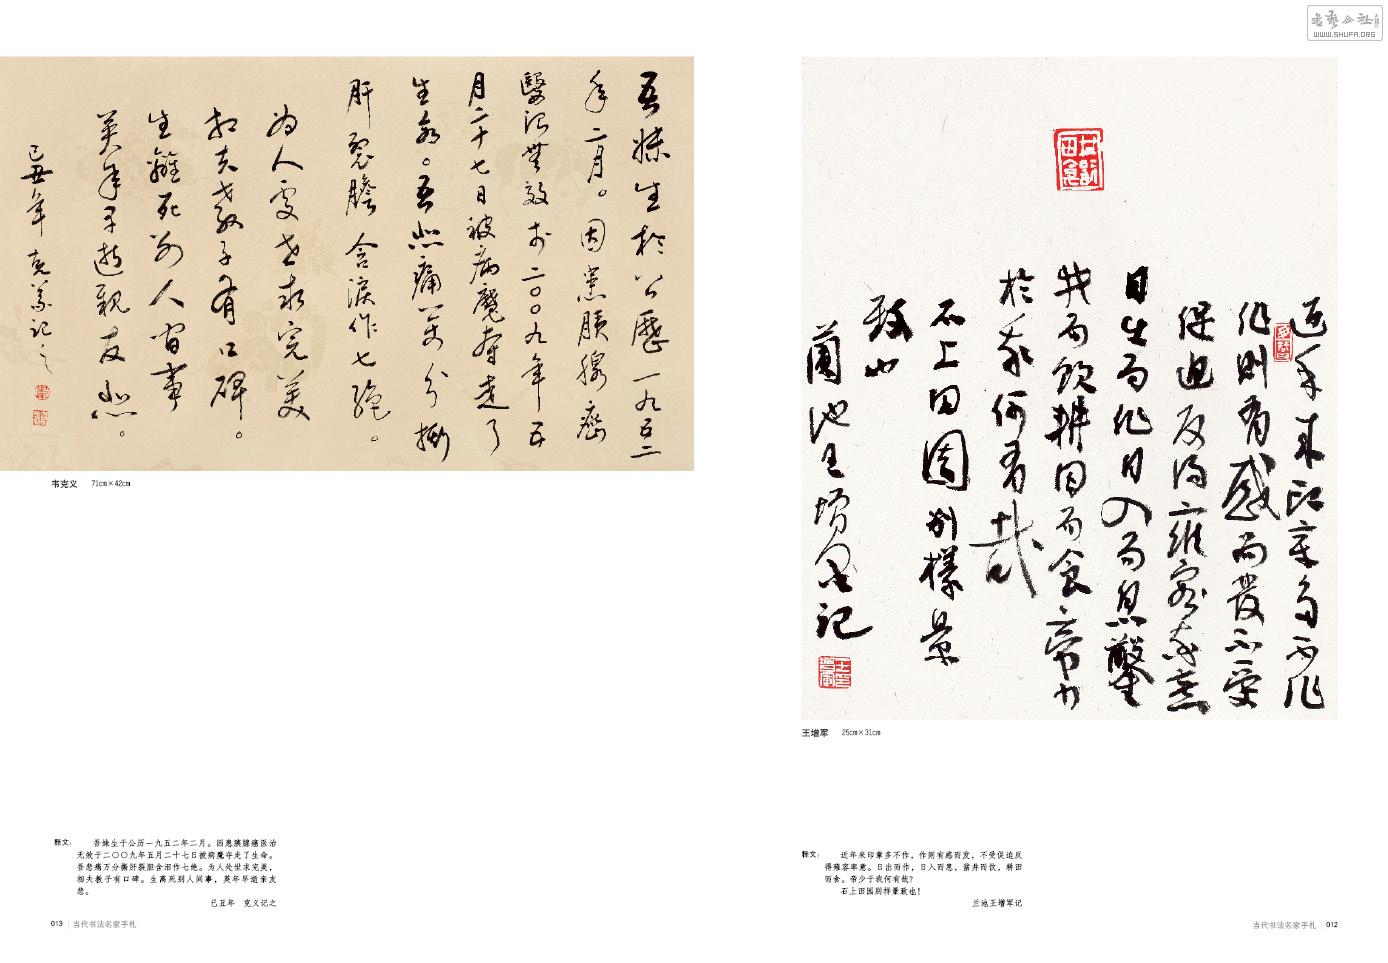 书艺公社
WWW.SHUFA.ORG
吾妹生於公歷一九五二
年二月。因患胰腺癌
醫治無效於二〇〇九年五
月二十七日被病魔奪走了
生命。吾悲痛万分撕
肝裂膽含淚作七絕。
为人處世求完美
相夫教子有口碑。
生離死別人間事
英年早逝親友悲。
己丑年 克義記之
韦克义 71cm×42cm
释文: 吾妹生于公历一九五二年二月。因患胰腺癌医治
无效于二〇〇九年五月二十七日被病魔夺走了生命。
吾悲痛万分撕肝裂胆含泪作七绝。为人处世求完美,
相夫教子有口碑。生离死别人间事,英年早逝亲友
悲。
己丑年 克义记之
013 当代书法名家手札
近年来印章多不作
作則有感而發不受
促迫反得雍容率意
日出而作日入而息鑿
井而飲耕田而食帝力
於我何有哉
石上田園別樣景
致也
蘭池王增軍記
王增军 25cm×31cm
释文: 近年来印章多不作,作则有感而发,不受促迫反
得雍容率意。日出而作,日入而息,凿井而饮,耕田
而食。帝少于我何有哉?
石上田园别样景致也!
兰池王增军记
当代书法名家手札 012